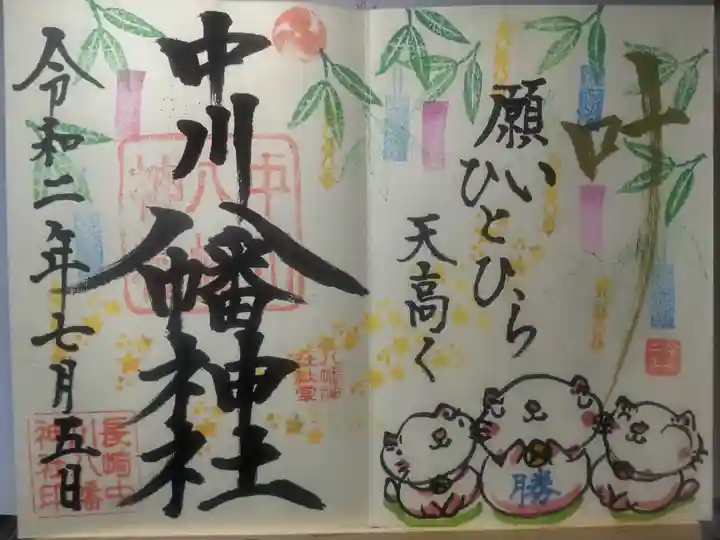 叶
願い
ひとひら
天高く
勝
中川八幡神社
令和二年七月五日
長崎中
川八幡
神社印